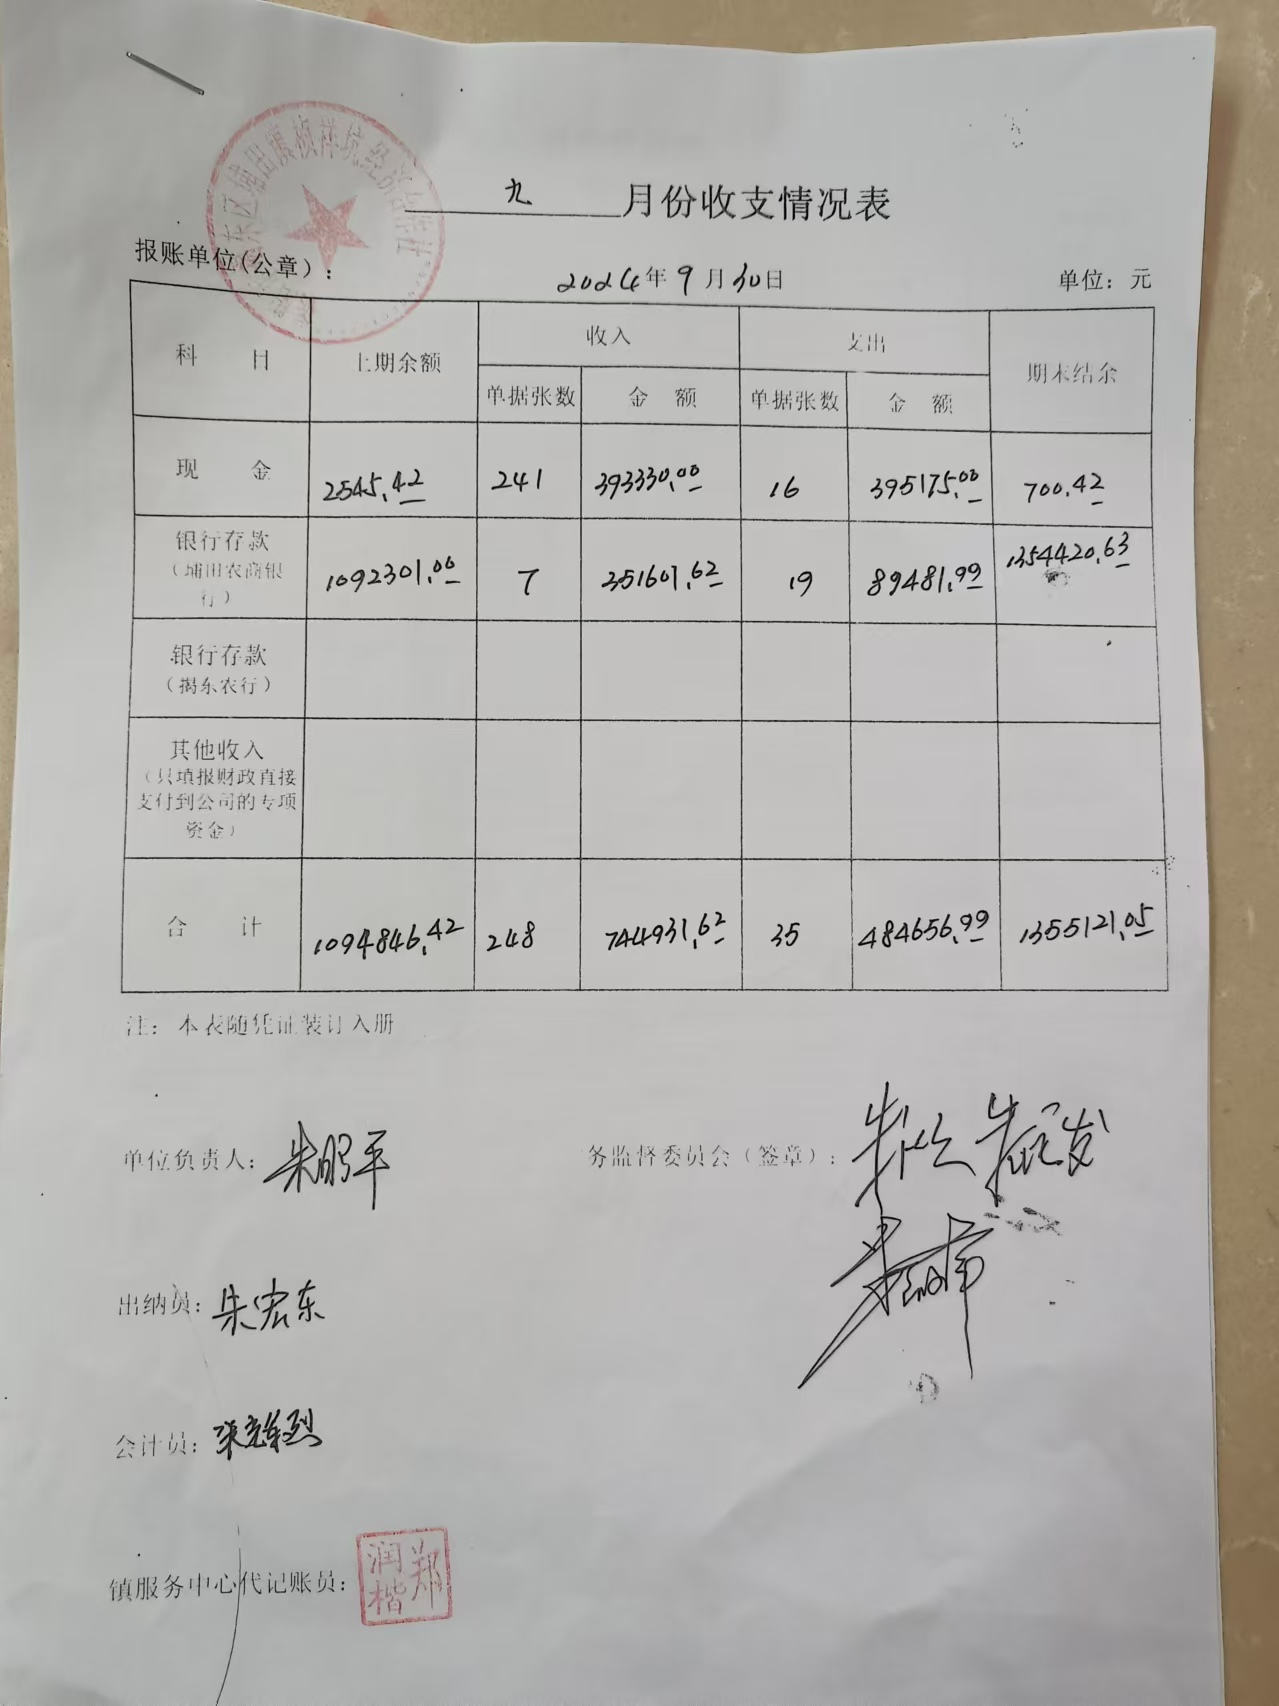 九 月份收支情况表
报账单位(公章):
2024年9月30日
单位：元
科 目 上期余额 收入 支出 期末结余
单据张数 金 额 单据张数 金 额
现 金 2545.42 241 393330.00 16 395175.00 700.42
银行存款
（埔田农商银行） 1092301.00 7 351601.62 19 89481.99 1354420.63
银行存款
（揭东农行）
其他收入
（只填报财政直接
支付到公司的专项
资金）
合 计 1094846.42 248 744931.62 35 484656.99 1355121.05
注：本表随凭证装订入册
单位负责人：
务监督委员会（签章）：
出纳员：朱宏东
会计员：
镇服务中心代记账员：郑润楷